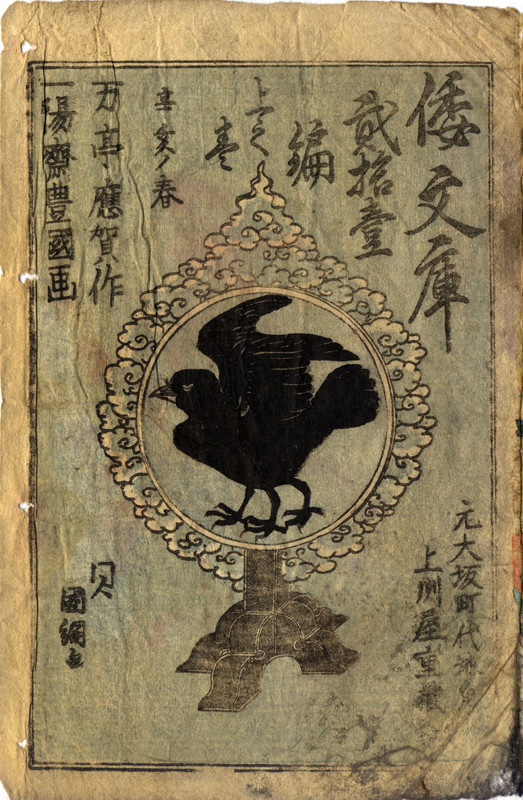 倭文庫
貳拾壹
編
上之
巻
辛亥ノ春
万亭應賀作
一陽齋豊國画
元大坂町代地
上州屋重蔵
國綱画